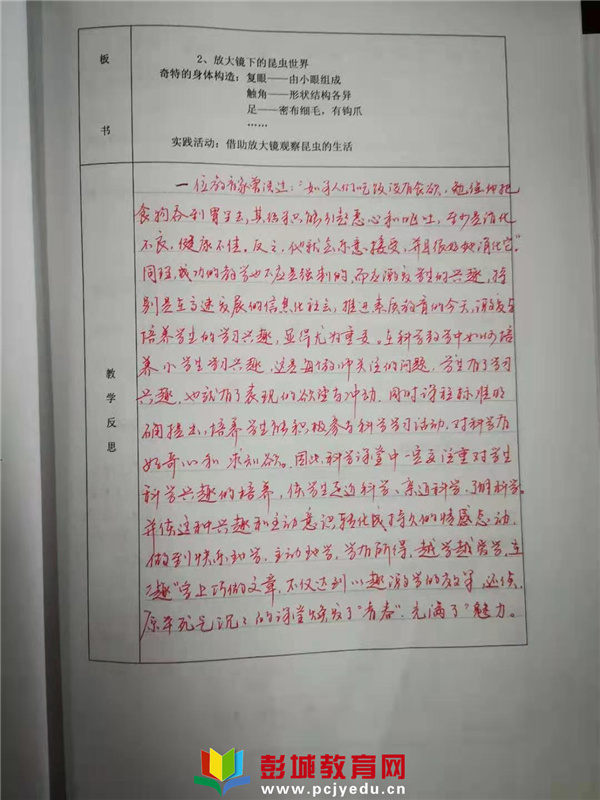 板书
2、放大镜下的昆虫世界
奇特的身体构造：复眼——由小眼组成
触角——形状结构各异
足——密布细毛，有钩爪
……
实践活动：借助放大镜观察昆虫的生活
教学反思
一位教育家曾说过："如果人们吃饭没有食欲，勉强地把
食物吞到胃里去，其结果只能引起恶心和呕吐，至少是消化
不良，健康不佳。反之，他就会乐意接受，并且很好地消化它"
同理，成功的教学也不应是强制的，而应激发学生的兴趣，特
别是在高速发展的信息化社会，推进素质教育的今天，激发与
培养学生的学习兴趣，显得尤为重要。在科学教学中如何培
养小学生学习兴趣，这是每教师关注的问题，学生有了学习
兴趣，也就有了表现的欲望与冲动，同时课程标准明
确指出，培养学生能积极参与科学学习活动，对科学有
好奇心和求知欲。因此，科学课堂中一定要注重对学生
科学兴趣的培养，使学生走近科学、亲近科学、了解科学。
并使这种兴趣和主动意识转化成持久的情感态动，
做到快乐地学，主动地学，学有所得，越学越爱学，在
"趣"字上巧做文章，不仅达到以趣激学的效果，还使
原本死气沉沉的课堂焕发了"青春"，充满了"魅力。
彭城教育网
www.pcjyedu.cn